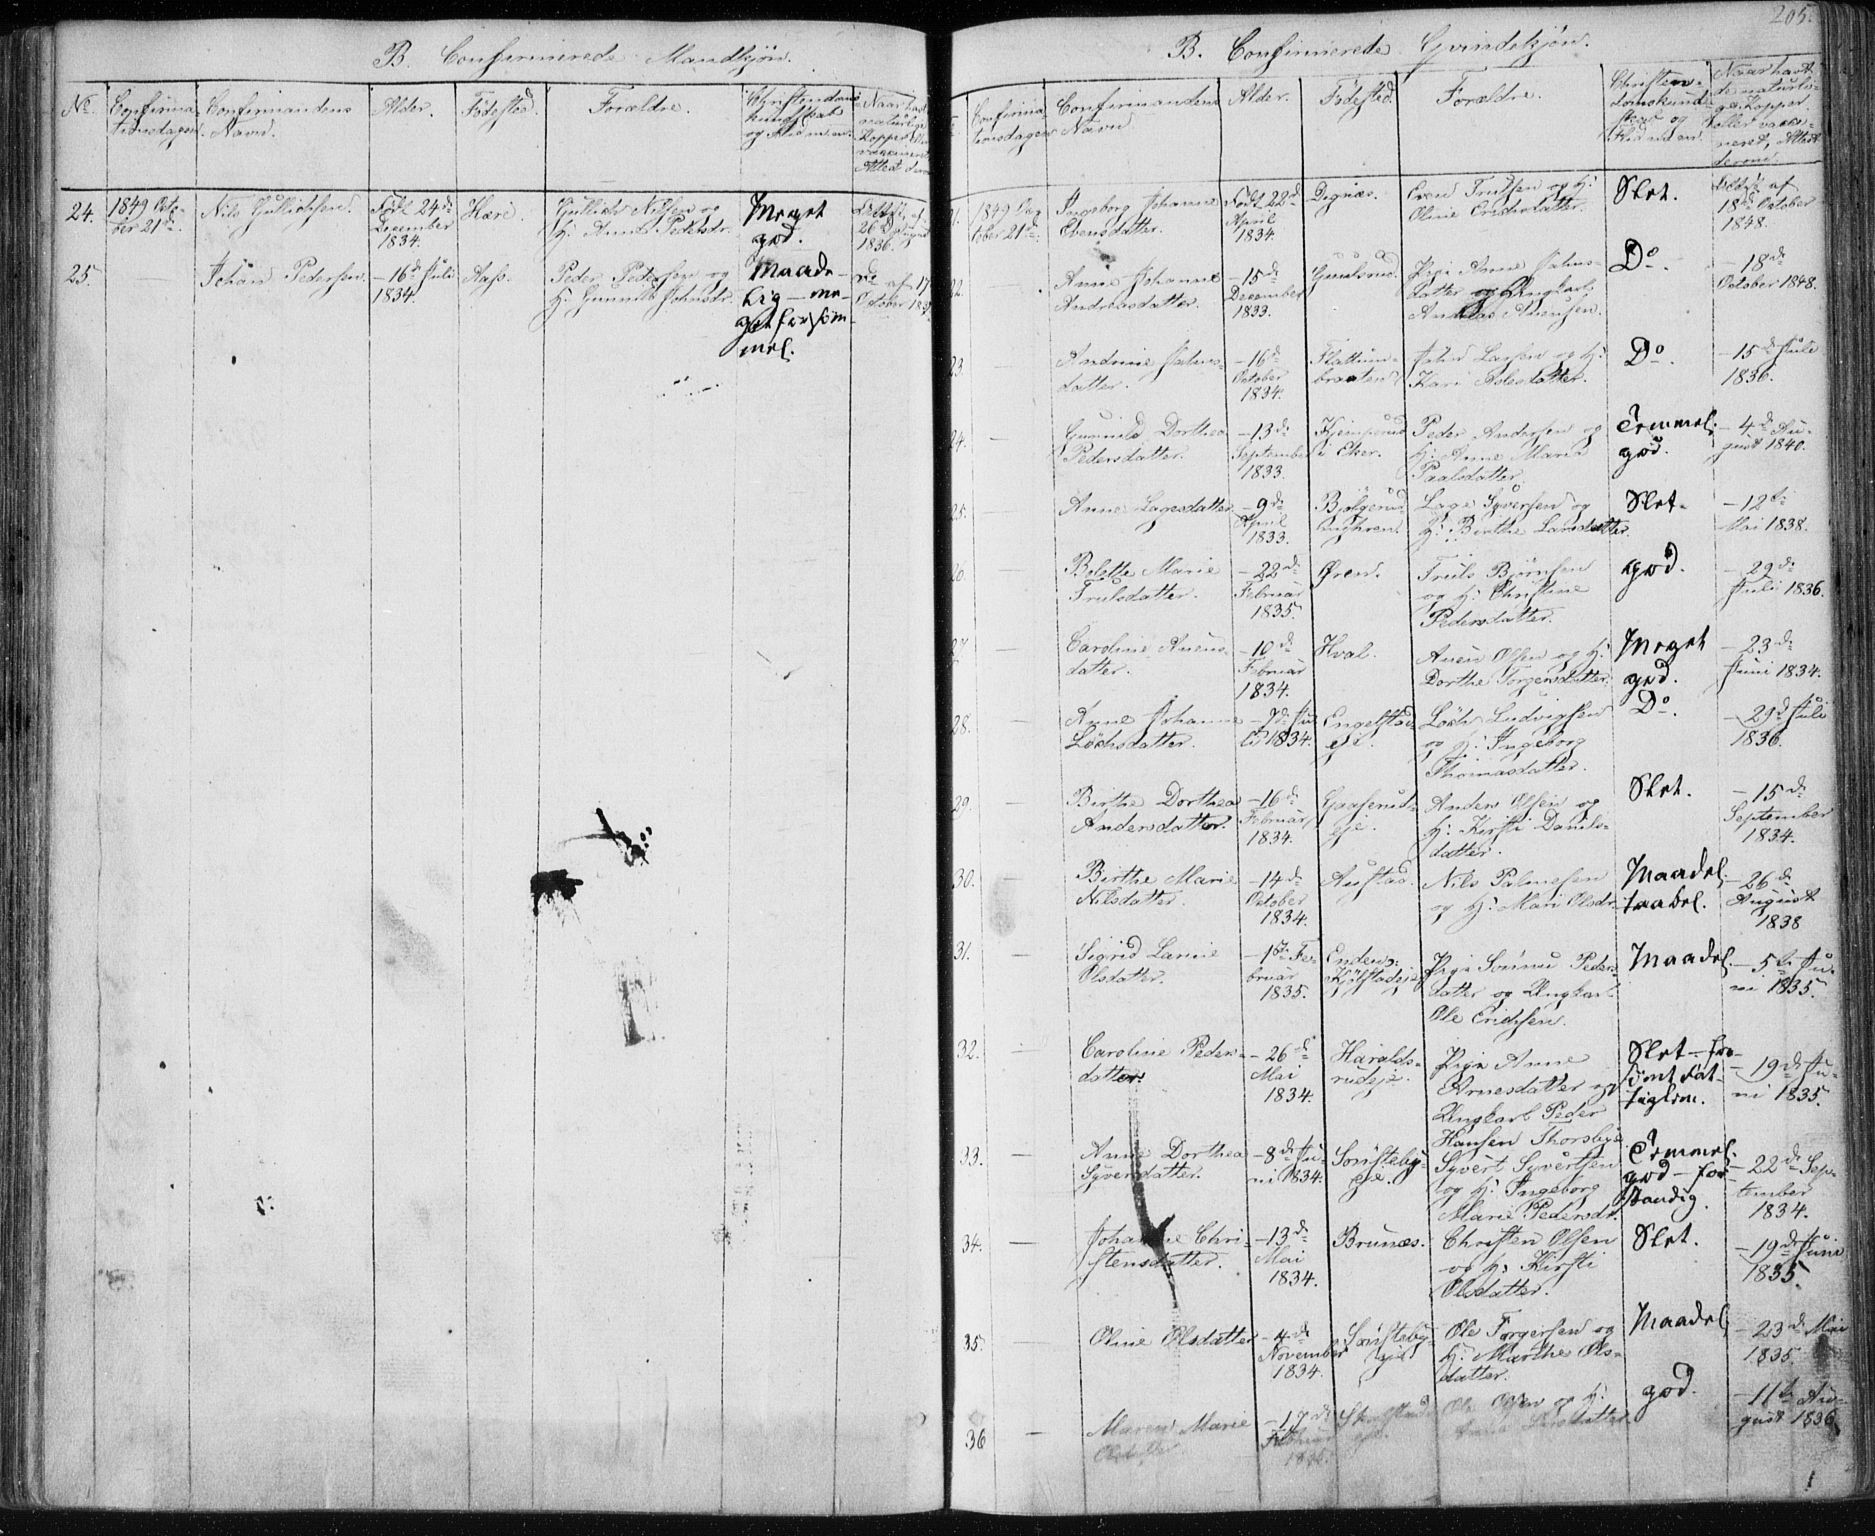 B. Confirmerede Mandkjøn.
No.
Confirmations dagen.
Confirmandens Navn.
Alder.
Fødested.
Forældre.
Christendoms kundskab og Flid m. m.
24.
1849 Octo-
ber 21de.
Nils Gullichsen.
Født 24de
December
1834.
Hæri.
Gullich Nilsen og
H: Anne Pedersdr.
Meget
god.
Attest af
26de August
1836.
25.
—
Johan Pedersen.
—16de Juli
1834.
Aass.
Peder Pedersen og
H: Gunnild Johnsdr.
Maade-
lig — me-
get forsøm-
mel.
October
205.
B. Confirmerede Qvindekjøn.
Confirma
tionsdagen
Confirmandens
Navn
Alder.
Fødested.
Forældre.
Christen-
domskund-
skab og
Flid m. m.
Naar havt
de naturli-
ge Kopper
eller vacci-
neret, Attest
derom.
21.
1849 Oc-
tober 21de.
Ingeborg Johanne
Evensdatter.
Født 22de
April
1834.
Dignæs.
Even Trulsen og H:
Oline Erichsdatter.
Slet.
Attest af
18de October
1848.
22.
Anne Johanne
Andreasdatter.
—15de
December
1833.
Gunlsrud.
Pige Anne Johns-
datter og Ungkarl
Andreas Auensen.
Do.
—18de
October 1848.
23.
—
Andrine Johns-
datter.
—16de
October
1834.
Flattum-
braaten.
John Larsen og H:
Kari Aslesdatter.
Do.
—15de Juli
1836.
24.
—
Gunnild Dorthea
Pedersdatter.
—13de
September
1833.
Kjemperud
i Eker.
Peder Andersen og
H: Anne Maria
Paalsdatter.
Temmel.
god.
—4de Au-
gust 1840.
25.
—
Anne Lagesdatter
—9de
April
1833.
Bjølgerud-
Lage Syversen og
H: Birthe Larsdatter.
Slet.
—12te
Mai 1838.
26.
—
Bolette Marie
Trulsdatter.
—22de
Februar
1835.
Øren.
Truls Bjørnsen
og H: Christine
Pedersdatter.
god.
—29de
Juli 1836.
27.
—
Caroline Auens-
datter.
—10de
Februar
1834.
Hval.
Auen Olsen og H:
Dorthe Torgersdatter.
Meget
god.
—23de
Juni 1834.
28.
—
Anne Johanne
Lochsdatter.
—7de Ju-
li 1834.
Engelstad-
eje.
Loch Ludvigsen
og H: Ingeborg
Thomasdatter.
Do.
—29de Juli
1836.
29.
—
Birthe Dorthea
Andersdatter.
—16de
Februar
1834.
Gaaserud-
eje.
Anders Olsen og
H: Kirsti Daniels-
datter.
Slet.
—15de
September
1834.
30.
—
Birthe Marie
Nilsdatter.
—14de
October
1834.
Austad.
Nils Palmesen
og H: Mari Olsdr.
Maadel.
taabel.
—26de
August
1838
31.
—
Sigrid Lamie
Olsdatter.
—1ste Fe-
bruar
1835.
Kjølstadeje
Pige Peders-
datter og Ungkarl
Ole Erichsen.
Maadel.
—5te Ju-
ni 1835.
32.
—
Caroline Peders-
datter.
—26de
Mai
1834.
Haralds-
rudeje.
Pige Anne
Arnesdatter og
Ungkarl Peder
Hansen Thorsbye.
Slet —
—19de Ju-
ni 1835.
33.
—
Anne Dorthea
Syversdatter.
—8de Ju-
ni 1834.
Sønsteby-
eje.
Syvert Syvertsen
og H: Ingeborg
Marie Pedersdr.
Temmel.
god — for-
standig.
—22de Sep-
tember
1834.
34.
—
Johanne Chri-
stensdatter.
—13de
Mai
1834.
Brunæs.
Christen Olsen
og H: Kirsti
Olsdatter.
Slet.
—19de Juni
1835.
35.
—
Oline Olsdatter
—4de
November
1834.
Sønsteby-
eje
Ole Torgersen og
H: Marthe Ols-
datter.
Maadel.
—23de Mai
1835.
36
—
Maren Marie
Olsdatter.
—17de
Februar
Ole Olsen og H:
Larsdatter.
god.
—11te Au-
gust 1836